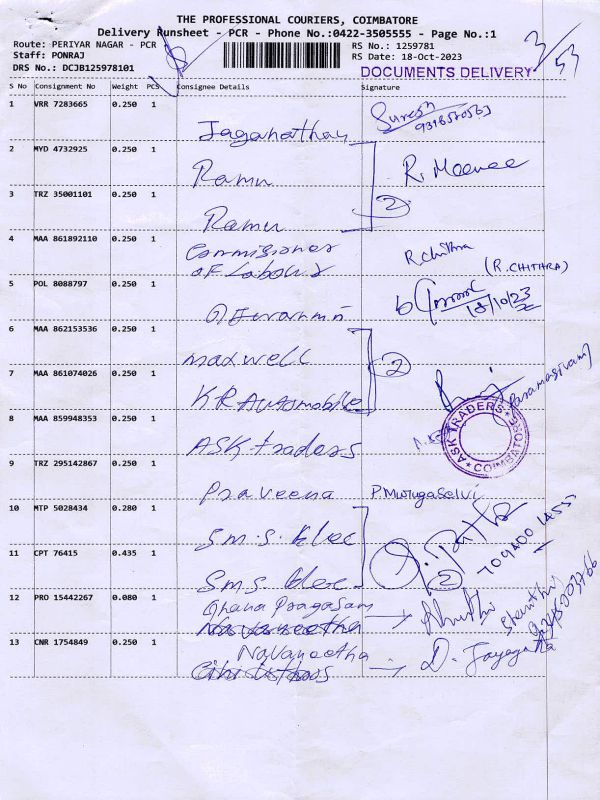 THE PROFESSIONAL COURIERS, COIMBATORE
Delivery Runsheet - PCR - Phone No.:0422-3505555 - Page No.:1
Route: PERIYAR NAGAR - PCR
Staff: PONRAJ
DRS No.: DCJB125978101
RS No.: 1259781
RS Date: 18-Oct-2023
DOCUMENTS DELIVERY
3/53
S No Consignment No Weight PCS Consignee Details Signature
1 VRR 7283665 0.250 1
Jaganathan Suresh
2 MYD 4732925 0.250 1
Ramu R. Meenee
3 TRZ 35001101 0.250 1
Ramu 2
4 MAA 861892110 0.250 1
Commisioner R. Chithra
of Labour (R. CHITHRA)
5 POL 8088797 0.250 1
18/10/23
6 MAA 862153536 0.250 1
maxwell 2
7 MAA 861074026 0.250 1
KR Automobile Paramasivam
8 MAA 859948353 0.250 1
ASK traders
ASK TRADERS * COIMBATORE
9 TRZ 295142867 0.250 1
Praveena P. Murugaselvi
10 MTP 5028434 0.280 1
S.m.s. Elec
11 CPT 76415 0.435 1
Sms Elec 2
12 PRO 15442267 0.080 1
Ghana Pragasam
Navaneetha
13 CNR 1754849 0.250 1
Navaneetha D. Jayega